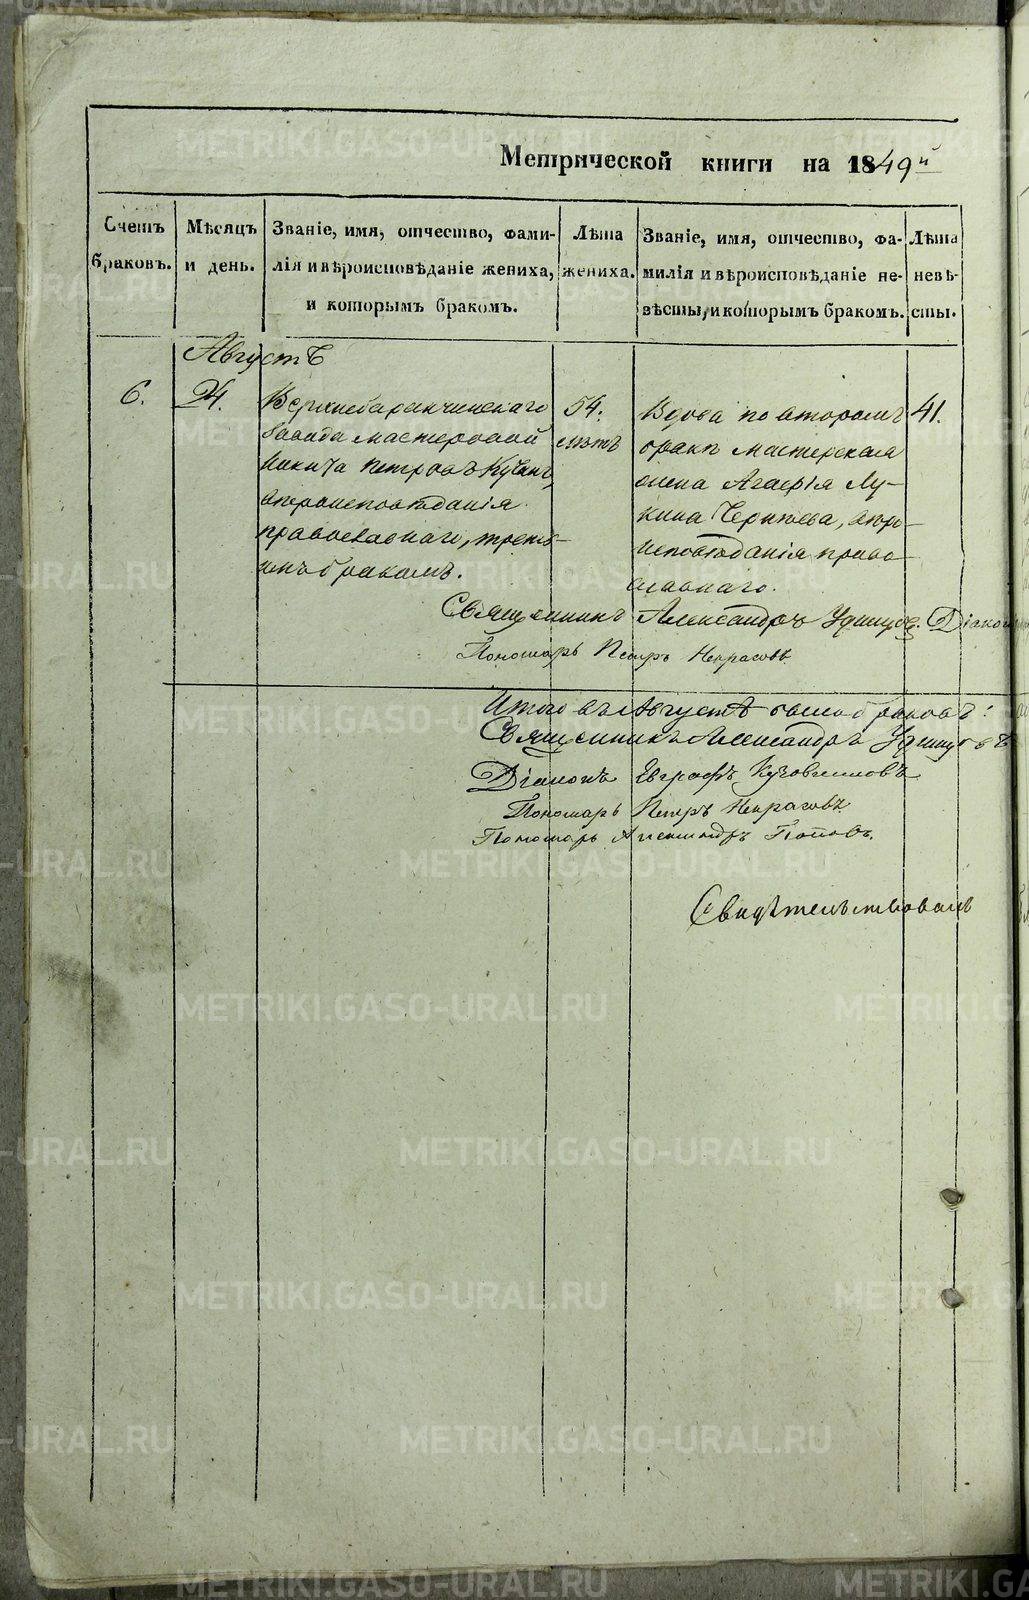 Метрической книги на 1849й
Счетъ браковъ.
Мѣсяцъ и день.
Званіе, имя, отчество, фами-
лія и вѣроисповѣданіе жениха,
и которымъ бракомъ.
Лѣта
жениха.
Званіе, имя, отчество, фа-
милія и вѣроисповѣданіе не-
вѣсты, и которымъ бракомъ.
Лѣта
невѣ-
сты.
Августъ
6.
24.
Верхнебаранчинскаго
завода мастеровой
Никита Петровъ
вѣроисповѣданія
православнаго, треть-
имъ бракомъ.
54.
лѣтъ
Вдова по второмъ
бракѣ мастерская
жена Агафія Лу-
кина вѣро-
исповѣданія право
славнаго.
41.
Священникъ Александръ Удинцов. Діакон
Пономарь Петръ Некрасовъ
Итого въ Августѣ браковъ:
Священникъ Александръ Удинцовъ
Діаконъ Евграфъ
Пономарь Петръ Некрасовъ
Пономарь Александръ Поповъ.
Свидѣтельствовалъ
METRIKI.GASO-URAL.RU